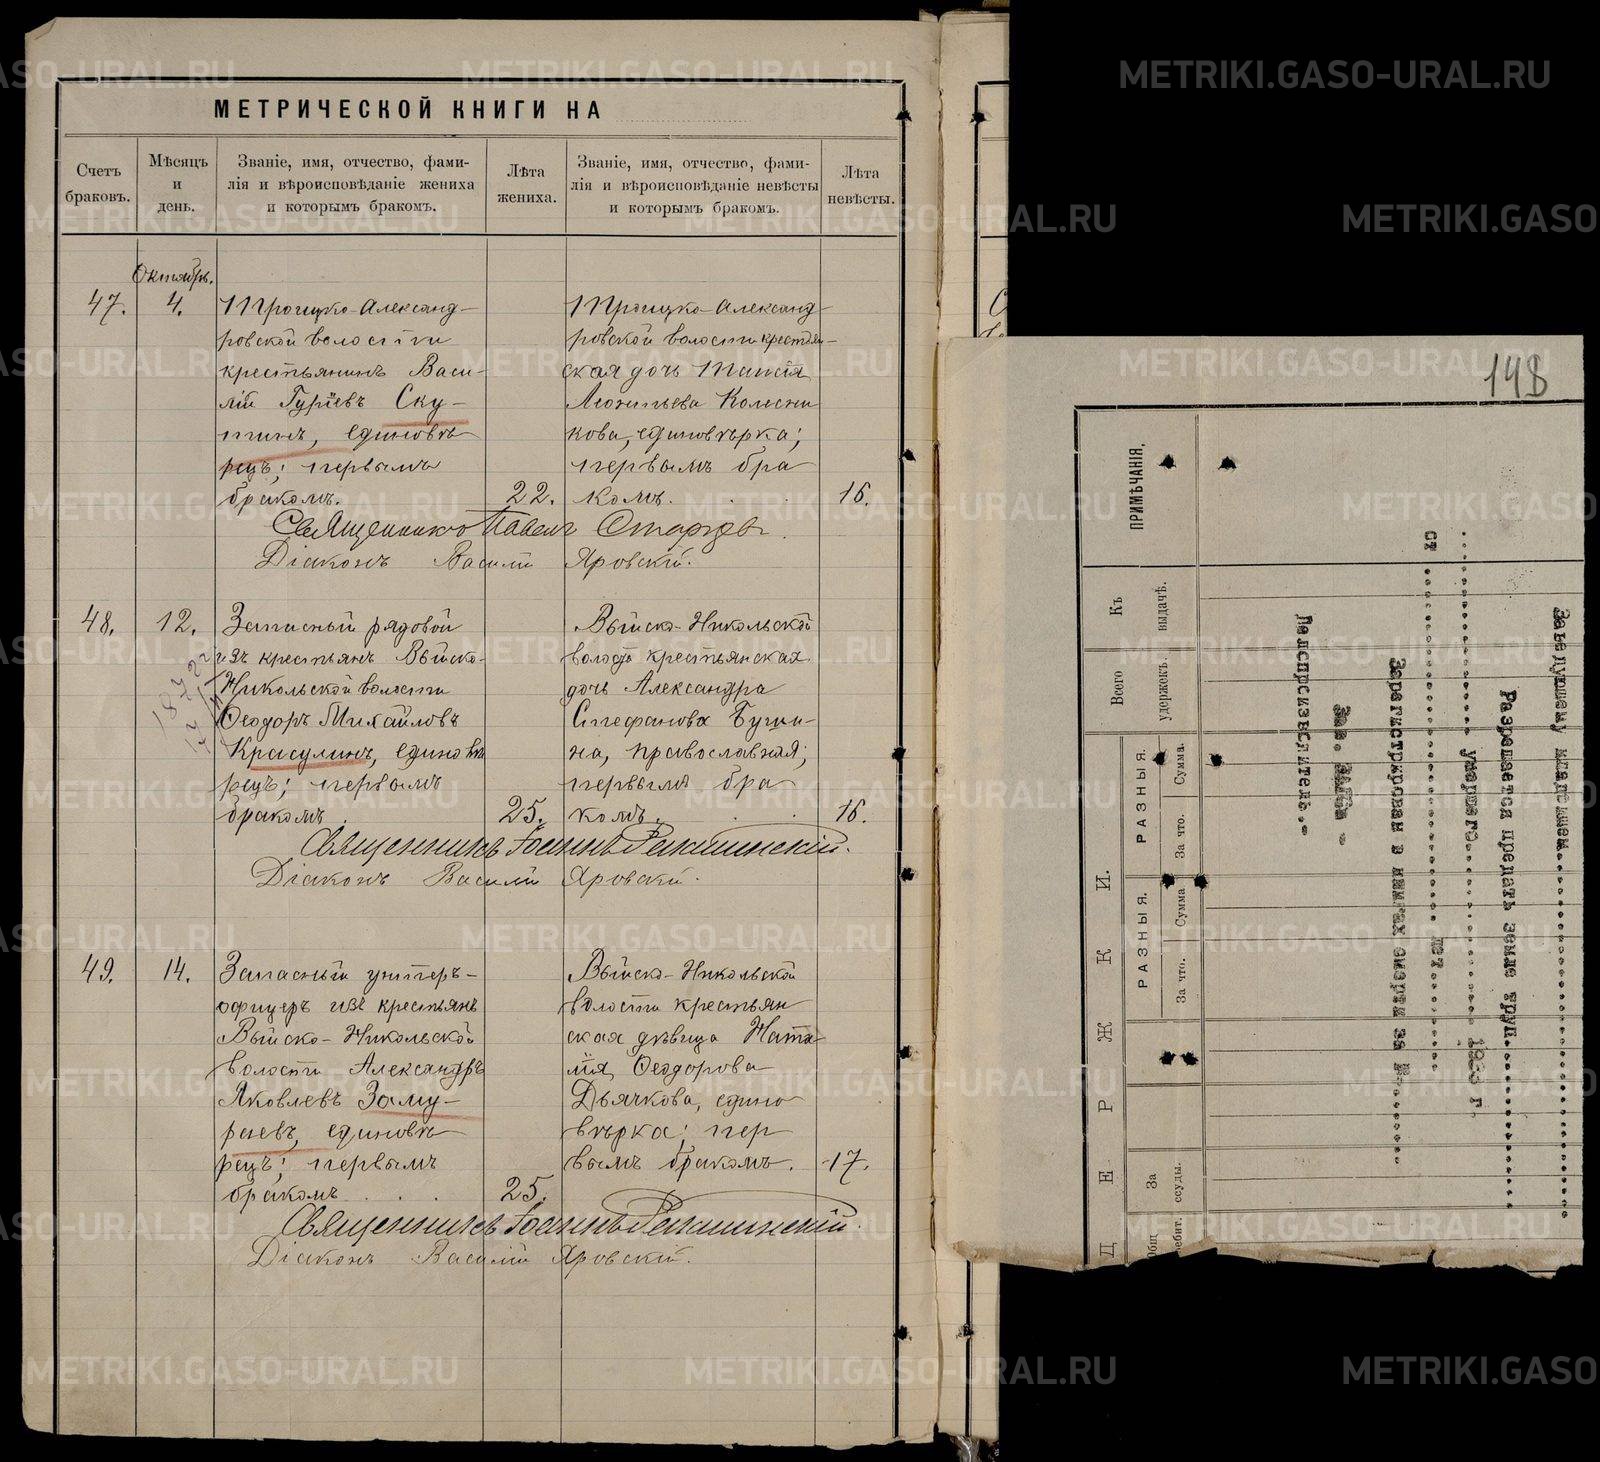 МЕТРИЧЕСКОЙ КНИГИ НА
Счетъ браковъ.
Мѣсяцъ и день.
Званіе, имя, отчество, фами-
лія и вѣроисповѣданіе жениха
и которымъ бракомъ.
Лѣта жениха.
Званіе, имя, отчество, фами-
лія и вѣроисповѣданіе невѣсты
и которымъ бракомъ.
Лѣта невѣсты.
Октябрь.
47.
4.
Троицко-Александ-
ровской волости
крестьянинъ Васи-
лій Гуріевъ Ску-
тинъ, единовѣ
рецъ; первымъ
бракомъ.
22.
Троицко-Александ
ровской волости крестьян-
ская дочь Таисія
Леонтьева Колесни
кова, единовѣрка;
первымъ бра
комъ.
16.
Священникъ Павелъ Старцевъ.
Діаконъ Василій Яровскій.
48.
12.
Запасный рядовой
изъ крестьянъ Выйско-
Никольской волости
Ѳеодоръ Михайловъ
Красулинъ, единовѣ
рецъ; первымъ
бракомъ.
25.
Выйско-Никольской
волости крестьянская
дочь Александра
Стефанова
на, православная;
первымъ бра
комъ.
16.
Священникъ Іоаннъ
Діаконъ Василій Яровскій.
49.
14.
Запасный унтеръ-
офицеръ изъ крестьянъ
Выйско-Никольской
волости Александръ
Яковлевъ Заму-
раевъ, единовѣ
рецъ; первымъ
бракомъ . . .
25.
Выйско-Никольской
волости крестьян
ская дѣвица Ната
лія Ѳеодорова
Дьячкова, едино
вѣрка; пер
вымъ бракомъ.
17.
Священникъ Іоаннъ
Діаконъ Василій Яровскій.
148
ПРИМѢЧАНІЯ.
Къ выдачѣ.
Всего удержек.
РАЗНЫЯ.
Сумма.
За что.
РАЗНЫЯ.
Сумма
За что.
За ссуды.
Д Е Р Ж К И.
Заведующему кладбищем
Разрешается предать земле труп
умершего 192 г.
от лет
Зарегистрирован в книгах смерти за №
Зав. ЗАГС -
Делопроизводитель.-
METRIKI.GASO-URAL.RU